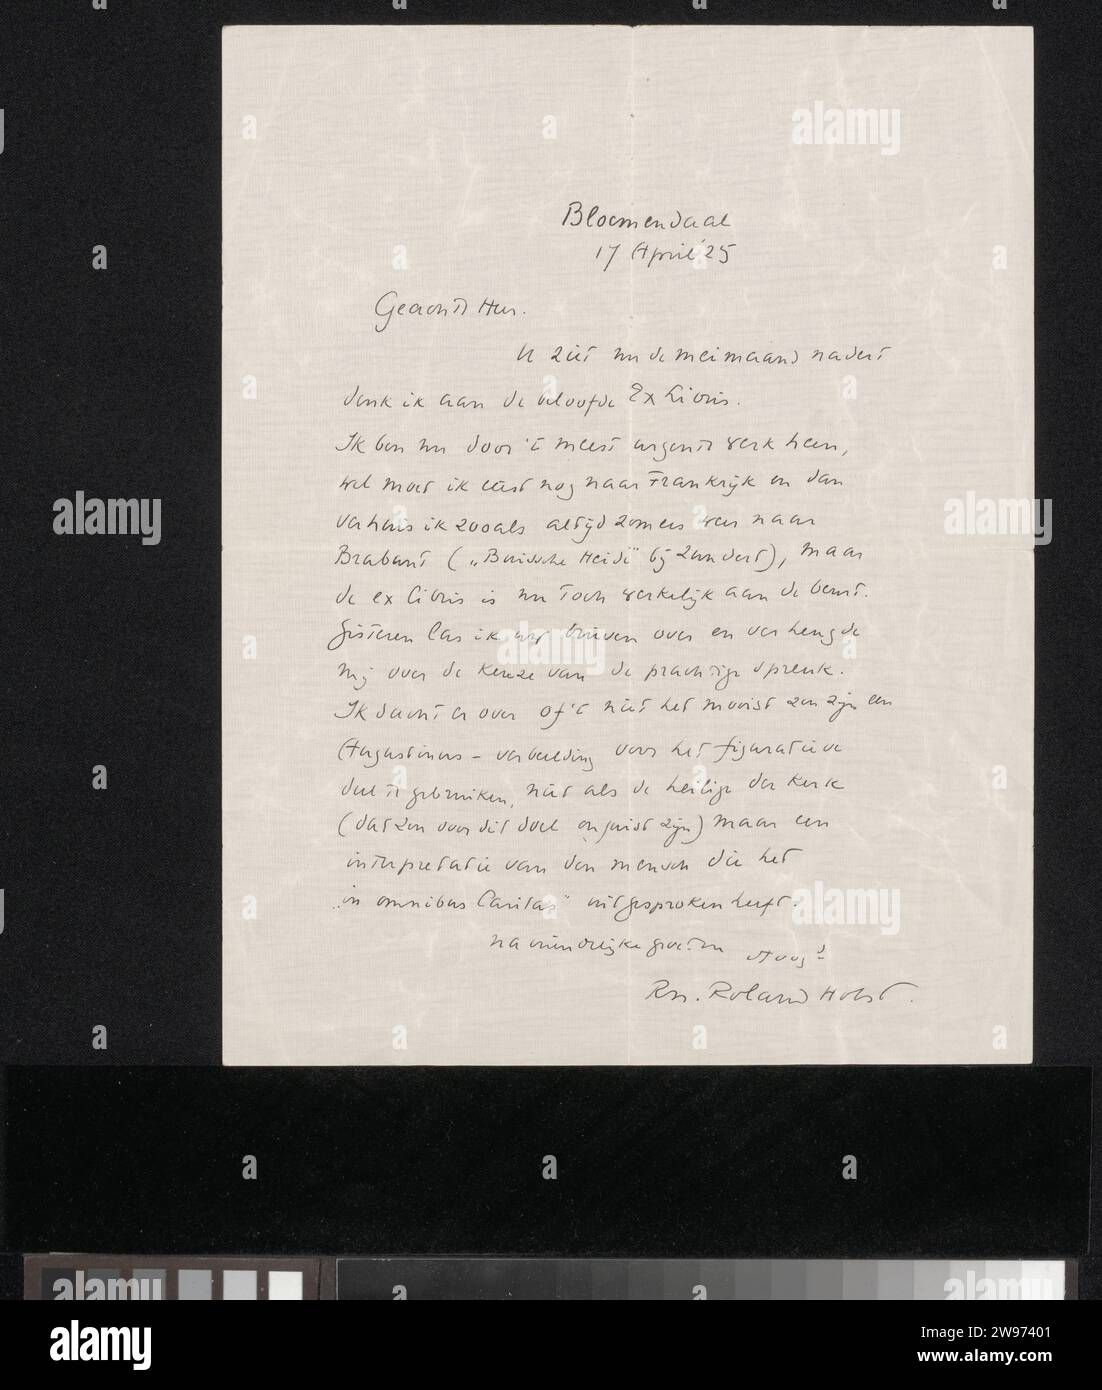 Bloemendaal
17 April '25
Geachte Heer.
U ziet nu de meimaand nadert
denk ik aan de beloofde Ex Libris.
Ik ben nu door 't meest urgente werk heen,
wel moet ik eerst nog naar Frankrijk en dan
verhuis ik zooals altijd zomers weer naar
Brabant („Buissche Heide" bij Zundert), maar
de ex libris is nu toch werkelijk aan de beurt.
Gisteren las ik uw brieven over en verheugde
mij over de keuze van de prachtige spreuk.
Ik dacht er over of 't niet het mooist zou zijn een
Augustinus - verbeelding voor het figuratieve
deel te gebruiken, niet als de heilige der kerk
(dat zou voor dit doel onjuist zijn) maar een
interpretatie van den mensch die het
„in omnibus Caritas" uitgesproken heeft.
na vriendelijke groeten Hoog!
Rn. Roland Holst.
alamy
www.alamy.com
Image ID: 2W97401